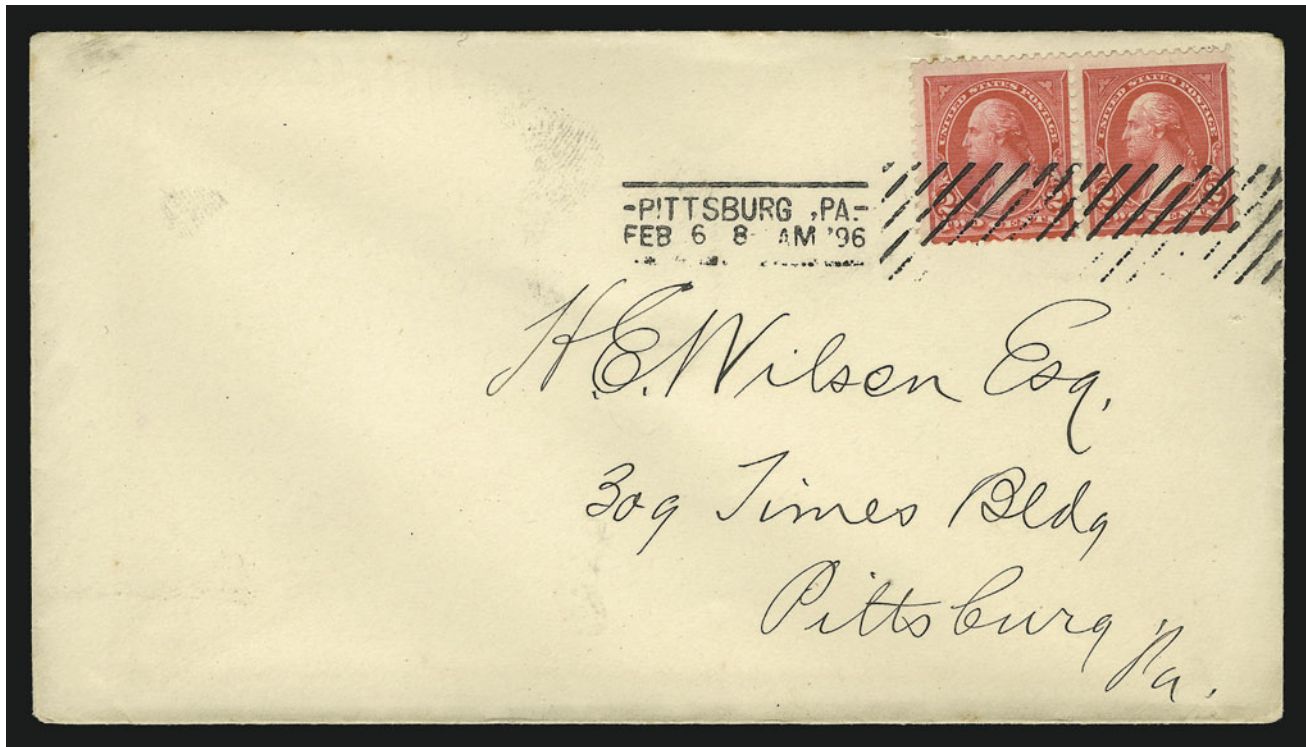 UNITED STATES POSTAGE UNITED STATES POSTAGE
-PITTSBURG ,PA.-
FEB 6 8 AM '96
H. E. Wilson Esq.
309 Times Bldg
Pittsburg Pa.